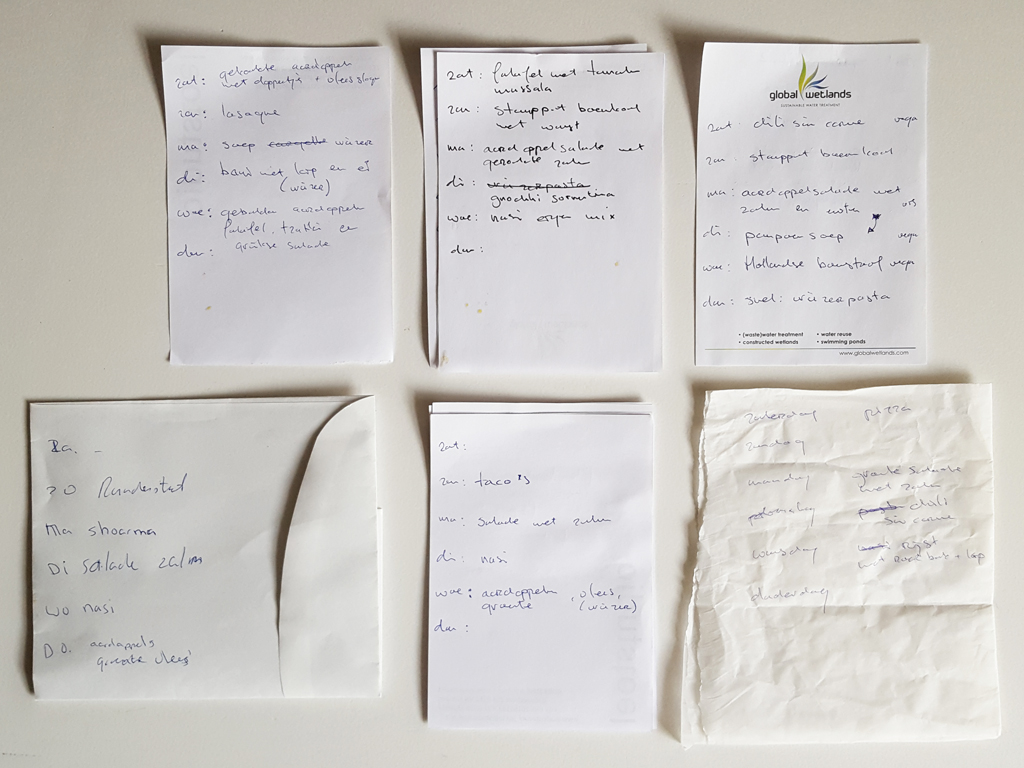 zat: gebakte aardappel
met doppertjes + vleesslaga
zon: lasagne
ma: soep wüzer
di: bami met kip en ei
(wüzer)
woe: gebakken aardappelen
falafel, tzatziki en
don: griekse salade
zat: falafel met
massala
zon: stamppot boerenkool
met worst
ma: aardappelsalade met
gerookte zalm
di: wüzerpasta
gnocchi sorrentina
woe: nasi eigen mix
don:
global wetlands
SUSTAINABLE WATER TREATMENT
zat: chili sin carne vega
zon: stamppot boerenkool
ma: aardappelsalade met
zalm en vis
di: pompoensoep vega
woe: Hollandse vega
don: snel: wüzerpasta
• (waste)water treatment
• constructed wetlands
• water reuse
• swimming ponds
www.globalwetlands.com
Za. -
ZO
Ma shoarma
Di salade zalm
WO nasi
DO. aardappels
groente vlees
zat:
zon: taco's
ma: salade met zalm
di: nasi
woe: aardappelen, vlees,
groente (wüzer)
don:
zaterdag pizza
zondag
maandag groente salade
met zalm
dinsdag chili
sin carne
woensdag rijst
donderdag